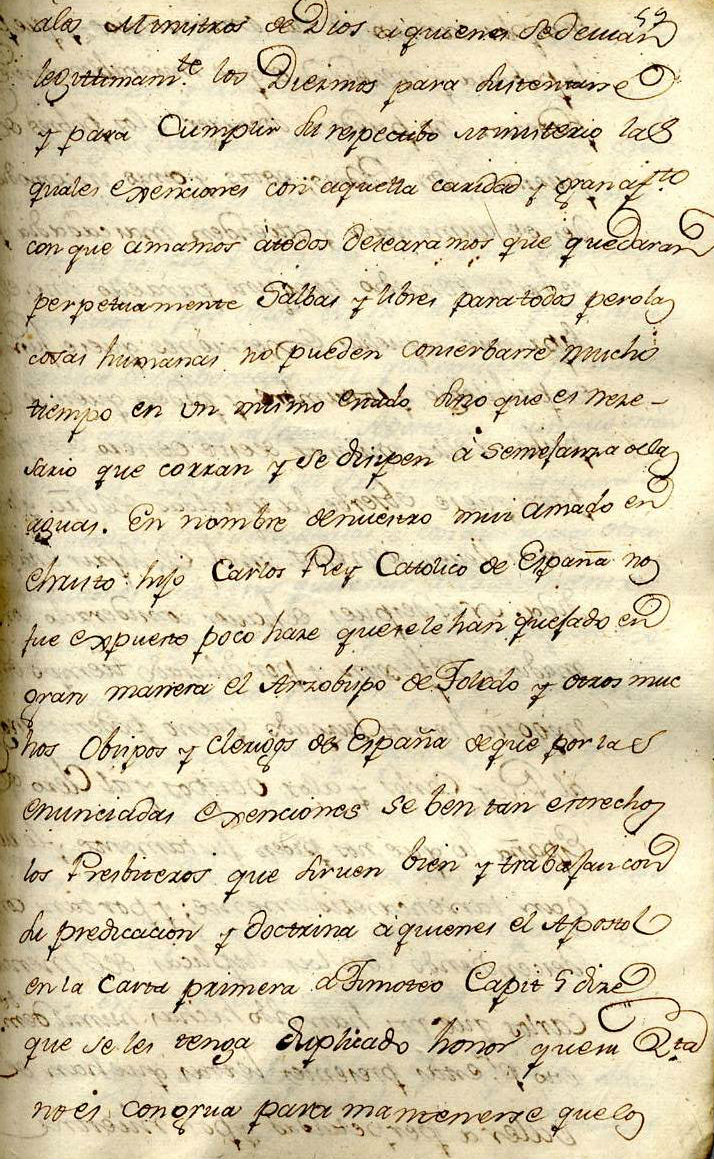 59
alos Ministros de Dios aquienes sedeuian
legittimam.te los Diezmos para sustentarse
y para Cumplir su respectibo Ministerio las
quales exenciones con aquella caridad y gran af.to
con que amamos átodos desearamos que quedaran
perpetuamente Salbas y libres paratodos perolas
cosas humanas no pueden conserbarse mucho
tiempo en un mismo estado sino que es neze-
sario que corran y se disipen á semejanza delas
aguas. En nombre denuestro mui amado en
Christo hijo Carlos Rey Catolico de España nos
fue expuesto poco haze quesele han quejado en
gran manera el Arzobispo de Toledo y otros muc
hos Obispos y clerigos de España deque por las
enunciadas exenciones se ben tan estrechos
los Presbiteros que siruen bien y trabajan con
su predicacion y doctrina aquienes el Apostol
en la Carta primera a Timoteo Capit 5 dize
que se les tenga duplicado honor que su
no es congrua para mantenerse quelos